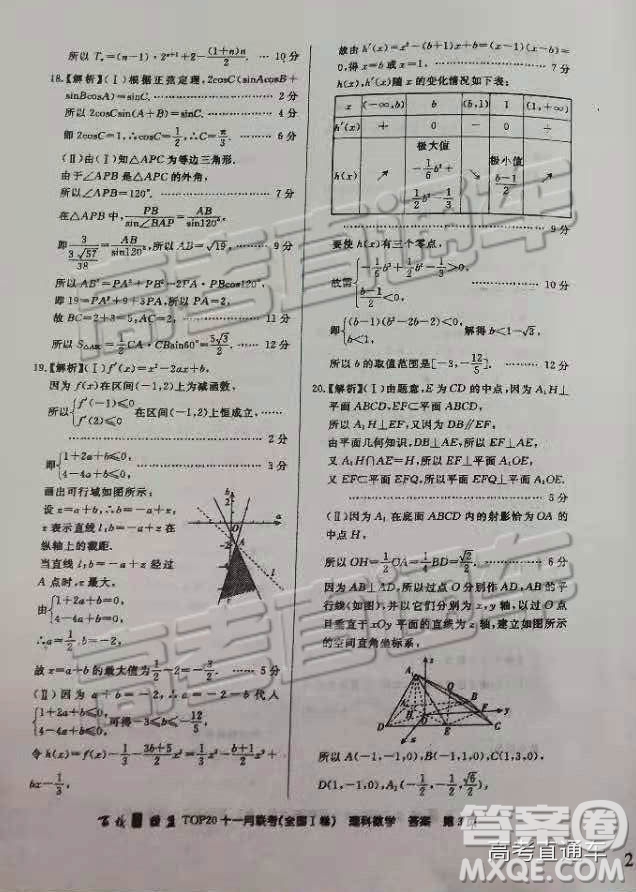 所以 Tₙ=(n-1)·2ⁿ⁺¹+2-(1+n)n/2. … 10分
18.【解析】(Ⅰ)根据正弦定理,2cosC(sinAcosB+
sinBcosA)=sinC. …… 2分
所以2cosCsin(A+B)=sinC. …… 4分
即2cosC=1,∴cosC=1/2,∴C=π/3. …… 6分
(Ⅱ)由(Ⅰ)知△APC为等边三角形.
由于∠APB是△APC的外角,
所以∠APB=120°. …… 7分
在△APB中,PB/sin∠BAP=AB/sin120°,
即3/(3√57/38)=AB/sin120°,所以AB=√19, …… 9分
所以AB²=PA²+PB²-2PA·PBcos120°,
即19=PA²+9+3PA,所以PA=2,
故BC=2+3=5,AC=2, …… 11分
所以S△ABC=1/2CA·CBsin60°=5√3/2. …… 12分
19.【解析】(Ⅰ)f′(x)=x²-2ax+b,
因为f(x)在区间(1,2)上为减函数,
所以{f′(1)≤0 f′(2)≤0 在区间(1,2)上恒成立, ……
…… 2分
即{1+2a+b≤0, 4-4a+b≤0, …… 3分
画出可行域如图所示:
设z=a+b,∴b=-a+z,
z表示直线l:b=-a+z在
纵轴上的截距.
当直线l:b=-a+z经过
A点时,z最大,
由{1+2a+b=0, 4-4a+b=0,
∴a=1/2,b=-2,
故z=a+b的最大值为1/2-2=-3/2. …… 5分
(Ⅱ)因为a+b=-2,所以a=-b-2代入
{1+2a+b≤0, 4-4a+b≤0, 可得-3≤b≤-12/5,
令h(x)=f(x)-1/3-(3b+5)/2x²=1/3x³-(b+1)/2x²+
bx-1/3,
故由h′(x)=x²-(b+1)x+b=(x-1)(x-b)=
0,得x=b或x=1. …… 7分
h(x),h′(x)随x的变化情况如下表:
x (-∞,b) b (b,1) 1 (1,+∞)
h′(x) + 0 - 0 -
h(x) ↗ 极大值 -1/6b³+1/2b²-1/3 ↘ 极小值 (b-1)/2 ↗
… 9分
要使h(x)有三个零点,
故需{-1/6b³+1/2b²-1/3>0, (b-1)/2<0, …… 10分
即{(b-1)(b²-2b-2)<0, b<1, 解得b<1-√3,
所以b的取值范围是[-3,-12/5]. …… 12分
20.【解析】(Ⅰ)由题意,E为CD的中点,因为A₁H⊥
平面ABCD,EF⊂平面ABCD,
所以A₁H⊥EF,又因为DB∥EF,
由平面几何知识,DB⊥AE,所以EF⊥AE,
又A₁H∩AE=H,所以EF⊥平面A₁OE,
又EF⊂平面EFQ,所以平面EFQ⊥平面A₁OE.
…… 5分
(Ⅱ)因为A₁在底面ABCD内的射影恰为OA的
中点H,
所以OH=1/2OA=1/4BD=√2/2, …… 6分
因为AB⊥AD,所以过点O分别作AD,AB的平
行线(如图),并以它们分别为x,y轴,以过O点
且垂直于xOy平面的直线为z轴,建立如图所示
的空间直角坐标系,
所以A(-1,-1,0),B(1,-1,0),C(1,1,0),
D(1,-1,0),A₁(-1/2,-1/2,√6/2),
TOP20十一月联考(全国Ⅰ卷) 理科数学 答案 第3页
高考直通车
高考直通车
高考直通车
答案圈
MXQE.COM
2